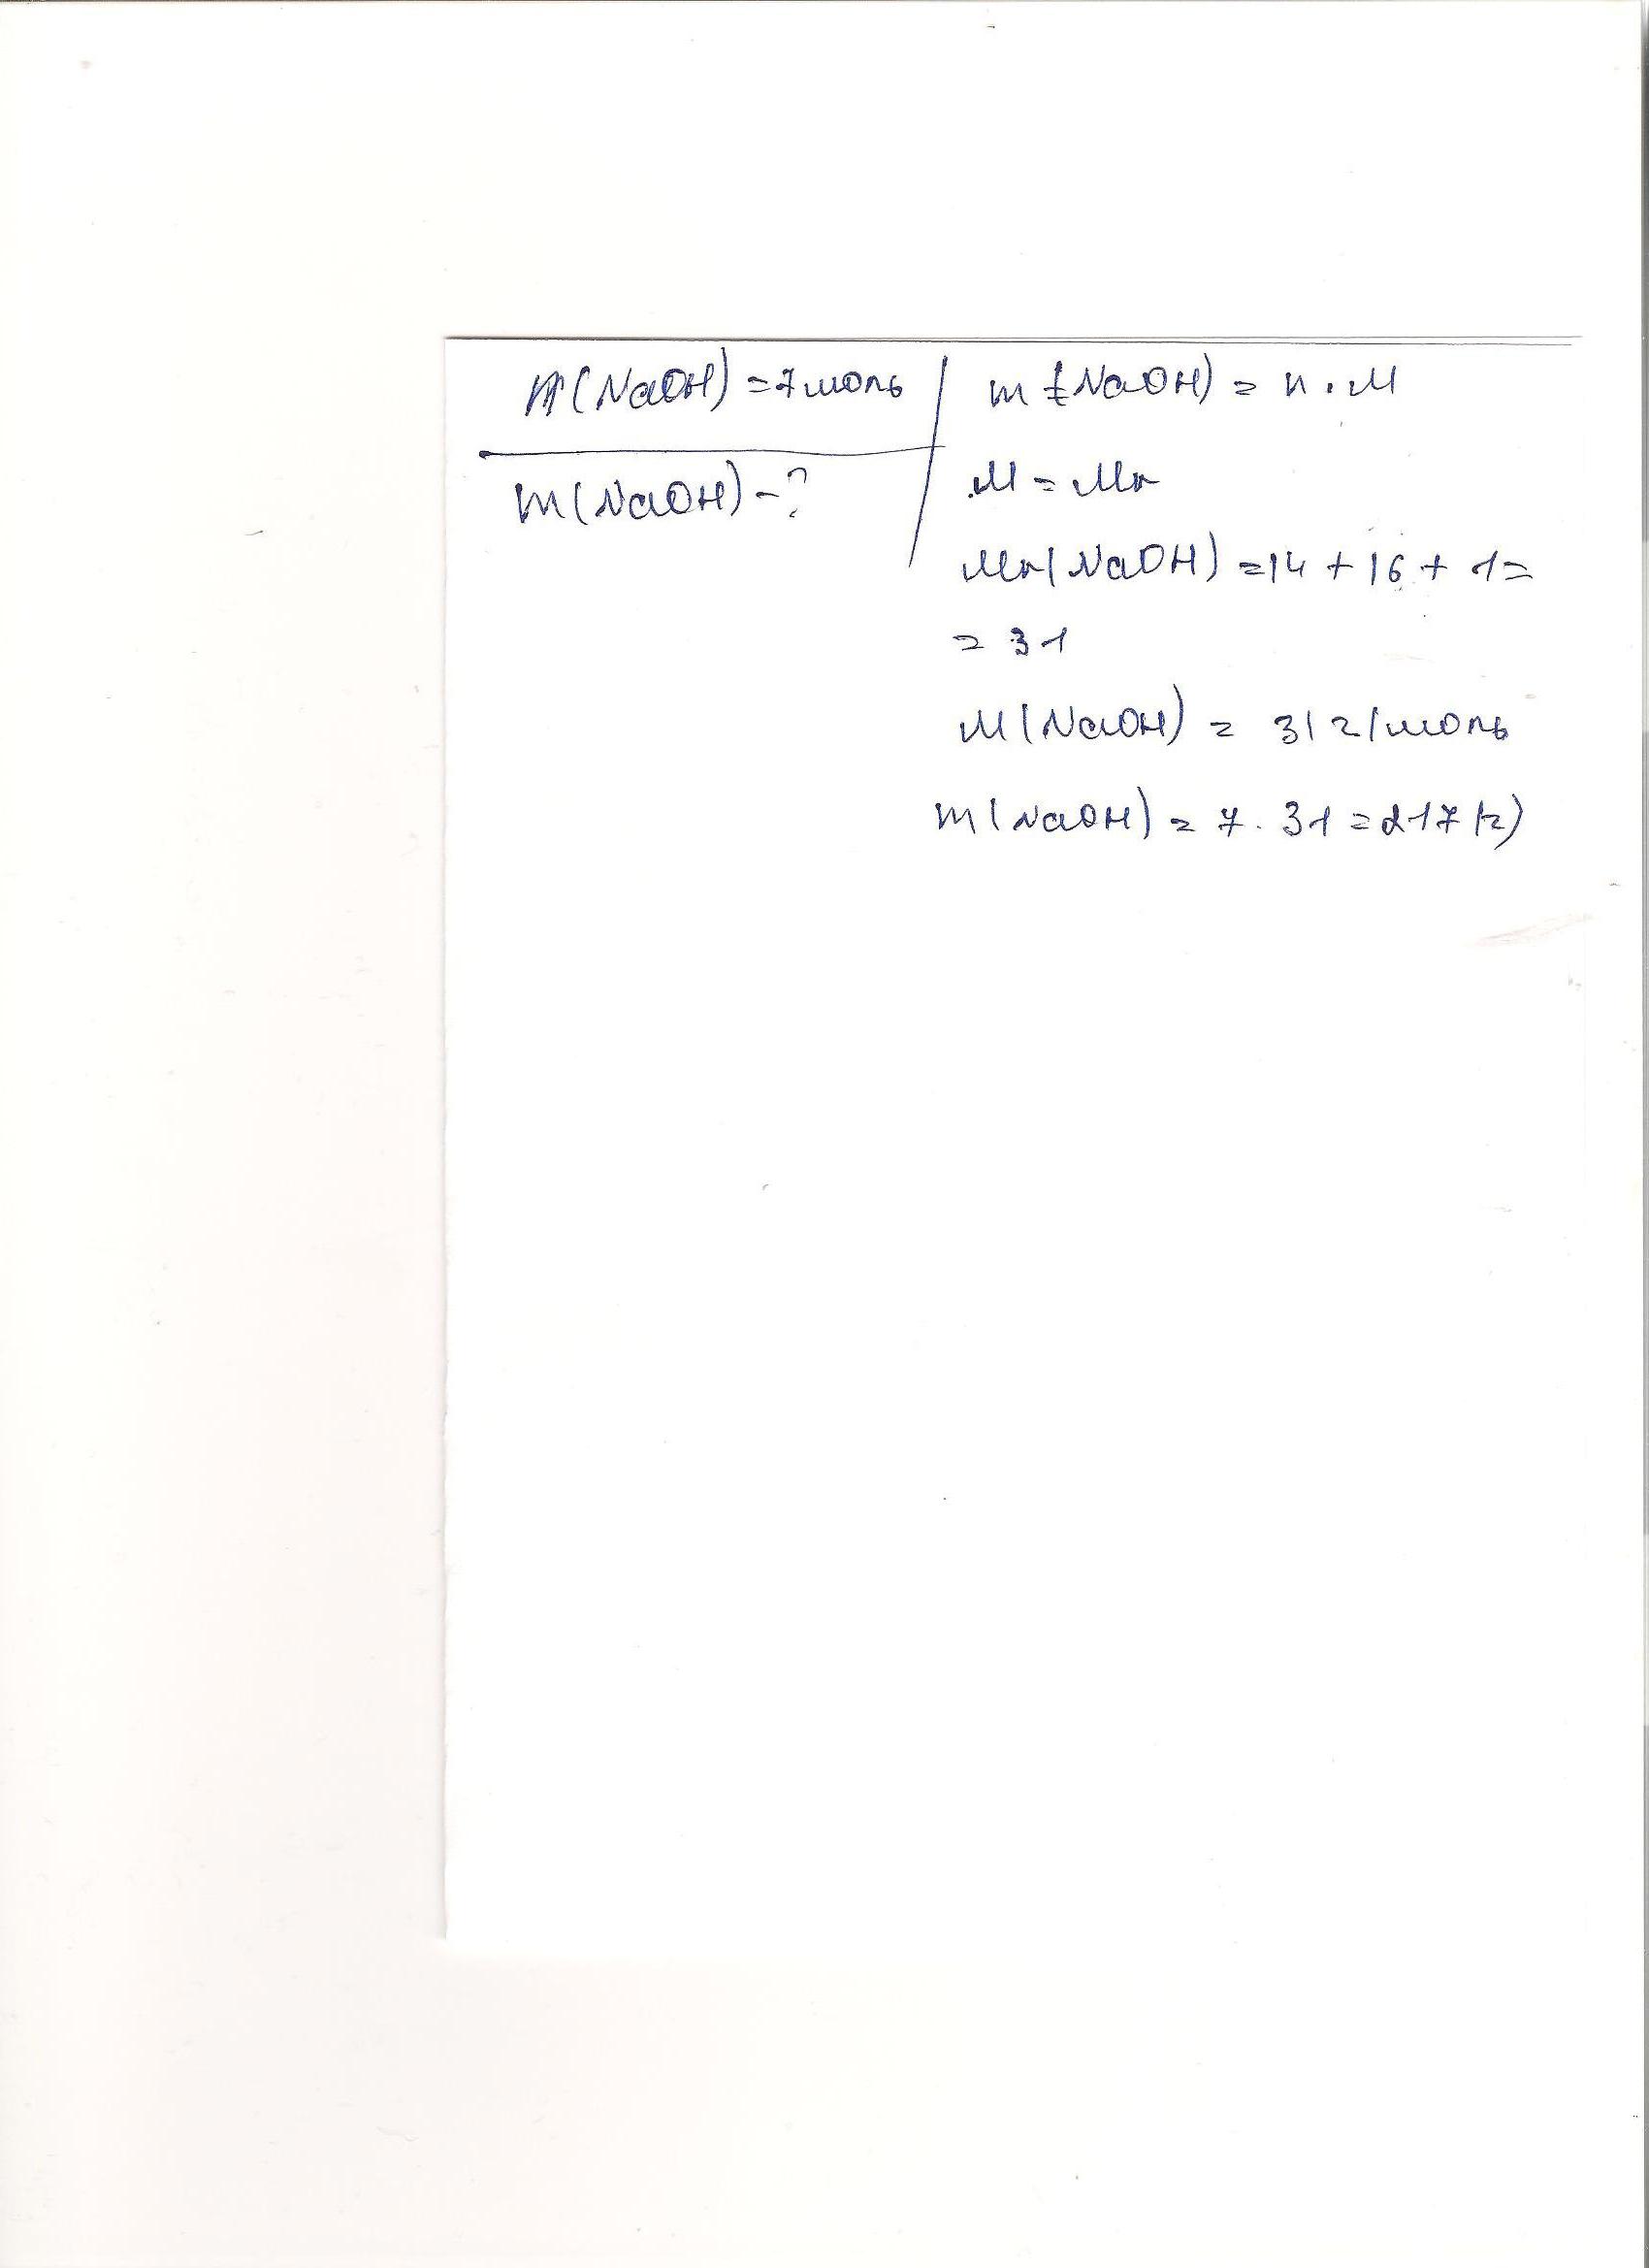 n(NaOH) = 7 моль
m(NaOH) - ?
m (NaOH) = n · M
M = Mr
Mr(NaOH) = 14 + 16 + 1 =
= 31
M(NaOH) = 31 г/моль
m(NaOH) = 7 · 31 = 217 (г)